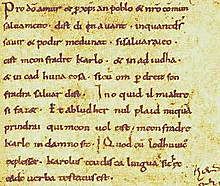 Pro dō amur & p xp̄ian poblo & nr̄o comun
saluament. dist di en auant. inquantd̄s
sauir & podir medunat. sisaluaraieo
cist meonfradre Karlo. & in ad iudha
& in cad huna cosa. sicū om p dreit son
fradra saluar dist. Ino quid il mialtre
si faz&. Et abludher nul plaid nūquā
prindrai qui meon uol cist meonfradre
Karle in damno sit. Quod cū lodhuuic
explesset. Karolus teudisca lingua sic hec
eadē uerba testatus est.